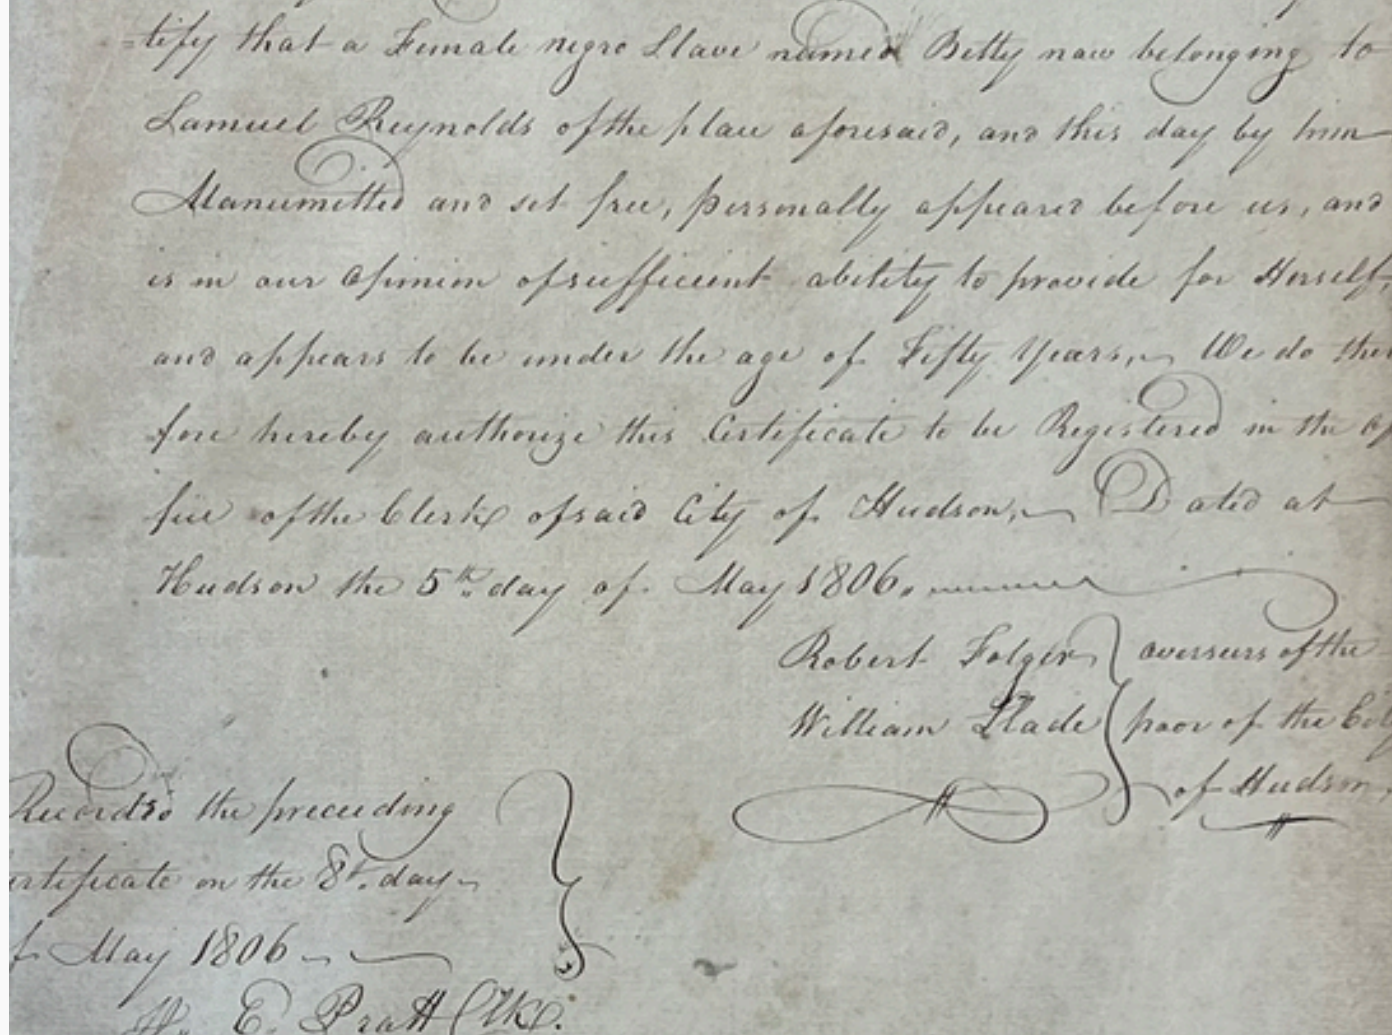 =tify that a Female negro Slave named Betty now belonging to
Samuel Reynolds of the place aforesaid, and this day by him
Manumitted and set free, personally appeared before us, and
is in our opinion of sufficient ability to provide for Herself,
and appears to be under the age of Fifty Years, We do there
fore hereby authorize this Certificate to be Registered in the of
fice of the Clerk of said City of Hudson, Dated at
Hudson the 5th day of May 1806.
Robert Folger } overseers of the
William Slade } poor of the City
of Hudson,
Recorded the preceding
ertificate on the 8th. day
f May 1806
H. E. Pratt Clk.